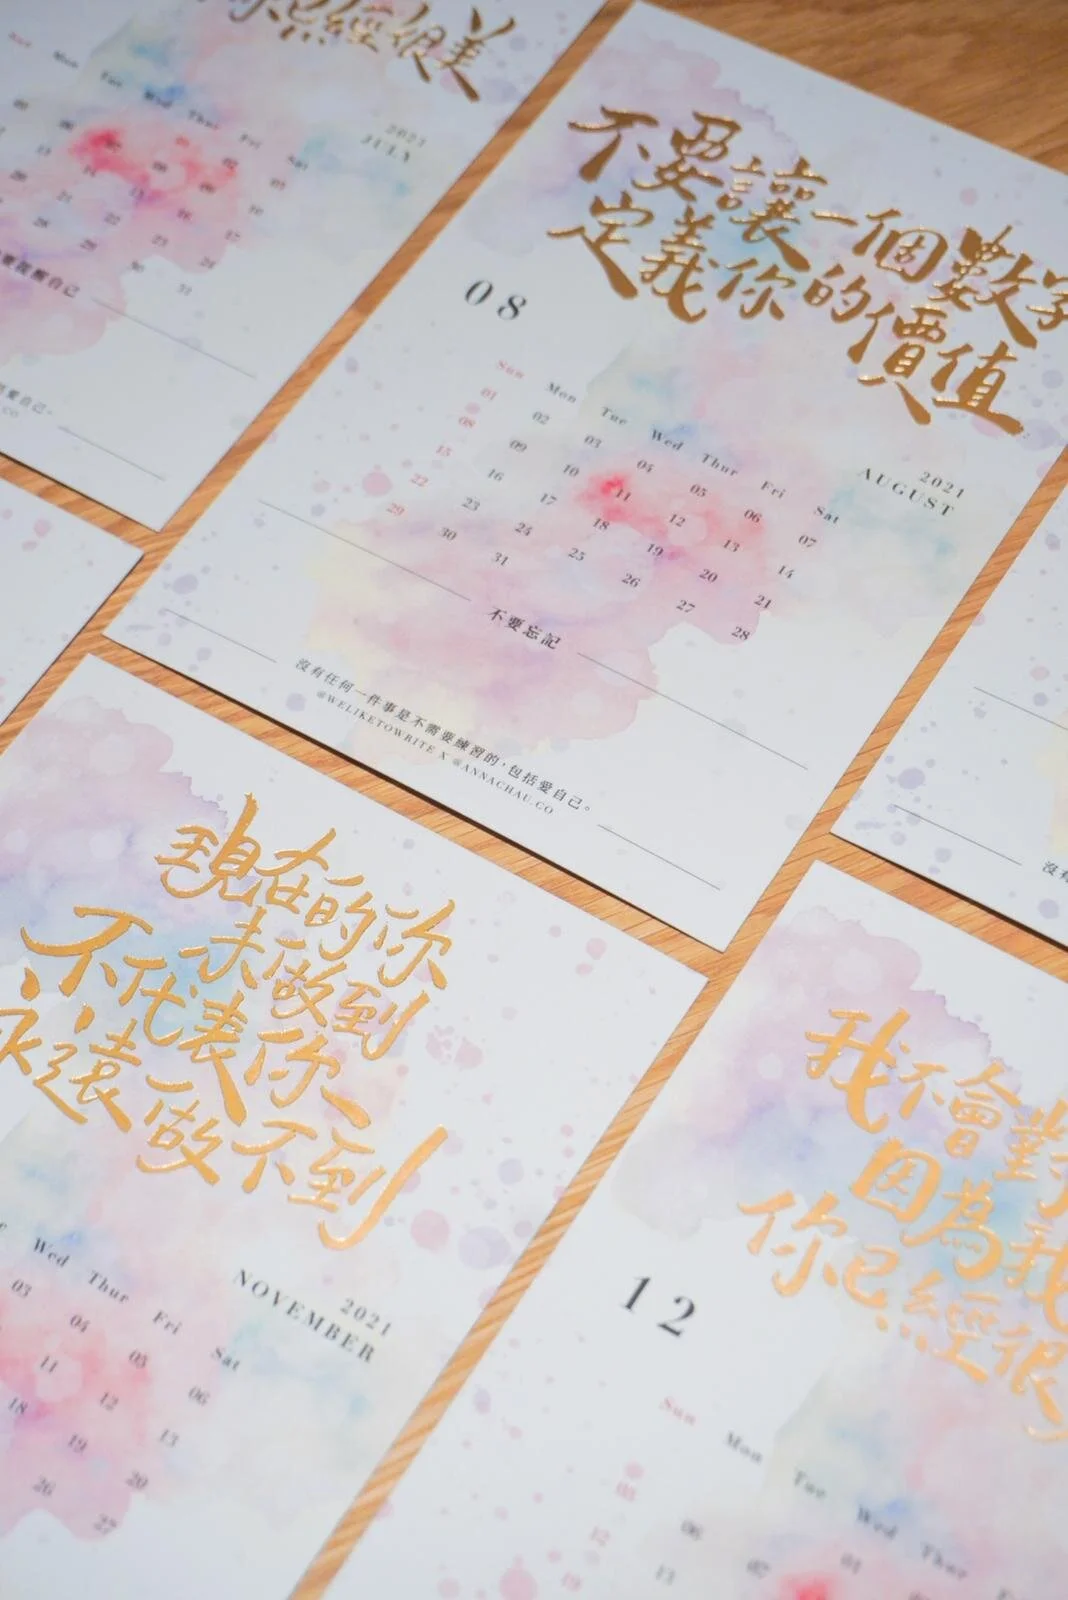 你已經很美
2021
JULY
Sun Mon Tue Wed Thur Fri Sat
要提醒自己
不要讓一個數字
定義你的價值
08
2021
AUGUST
Sun Mon Tue Wed Thur Fri Sat
01 02 03 04 05 06 07
08 09 10 11 12 13 14
15 16 17 18 19 20 21
22 23 24 25 26 27 28
29 30 31
不要忘記
沒有任何一件事是不需要練習的，包括愛自己。
@WELIKETOWRITE X @ANNACHAU.CO
沒有
現在的你
未做到
不代表你
永遠做不到
2021
NOVEMBER
Wed Thur Fri Sat
03 04 05 06
11 12 13
18 19 20
26 27
我不會對
因為我
你已經很
12
Sun Mon Tue Wed Thur
01 02
05 06
12 13
19